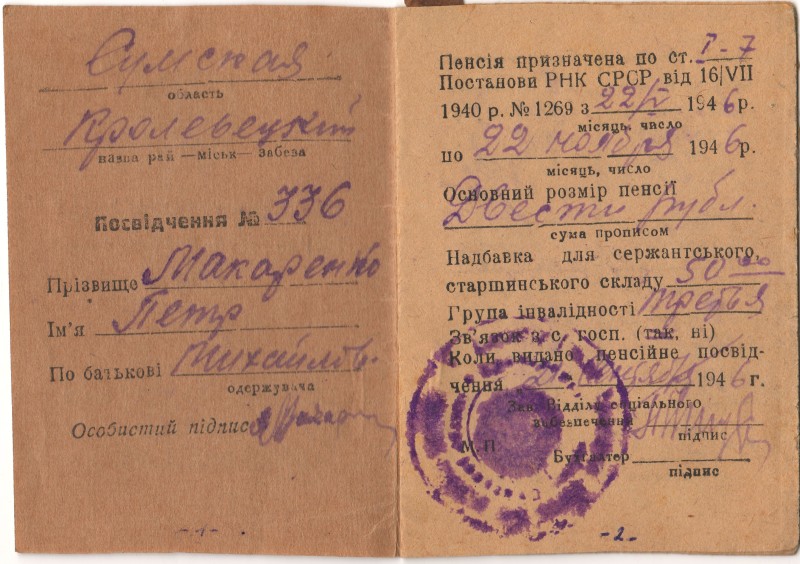 Сумская
область
Кролевецкий
назва рай — міськ — Забеза
Посвідчення № 336
Прізвище Макаренко
Ім'я Петр
По батькові Михайлов.
одержувача
Особистий підпис
- 1 -
Пенсія призначена по ст. I-7
Постанови РНК СРСР від 16/VII
1940 р. № 1269 з 22/V 1946 р.
місяць, число
по 22 ноября 1946 р.
місяць, число
Основний розмір пенсії
Двести рубл.
сума прописом
Надбавка для сержантського,
старшинського складу 50 00
Група інвалідності третья
Зв'язок з с. госп. (так, ні)
Коли видано пенсійне посвід-
чення 1946 г.
Зав. Відділу соціального
забезпечення
підпис
М. П.
Бухгалтер
підпис
- 2 -